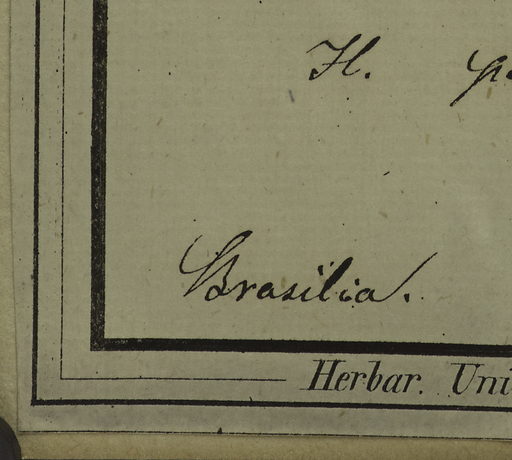 H.
Brasilia.
Herbar. Uni